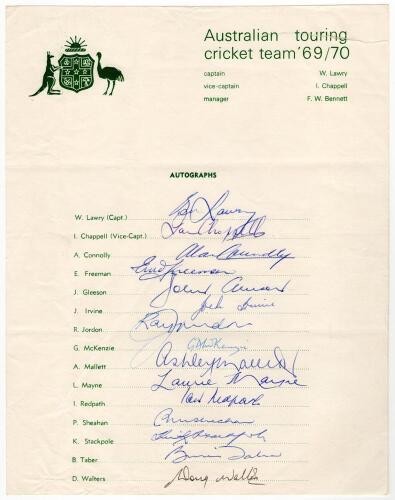 Australian touring
cricket team '69/70
captain W. Lawry
vice-captain I. Chappell
manager F. W. Bennett
AUTOGRAPHS
W. Lawry (Capt.) Bill Lawry
I. Chappell (Vice-Capt.) Ian Chappell
A. Connolly Alan Connolly
E. Freeman Eric Freeman
J. Gleeson John Gleeson
J. Irvine Jock Irvine
R. Jordon Ray Jordon
G. McKenzie G McKenzie
A. Mallett Ashley Mallett
L. Mayne Laurie Mayne
I. Redpath Ian Redpath
P. Sheahan
K. Stackpole Keith Stackpole
B. Taber Brian Taber
D. Walters Doug Walters